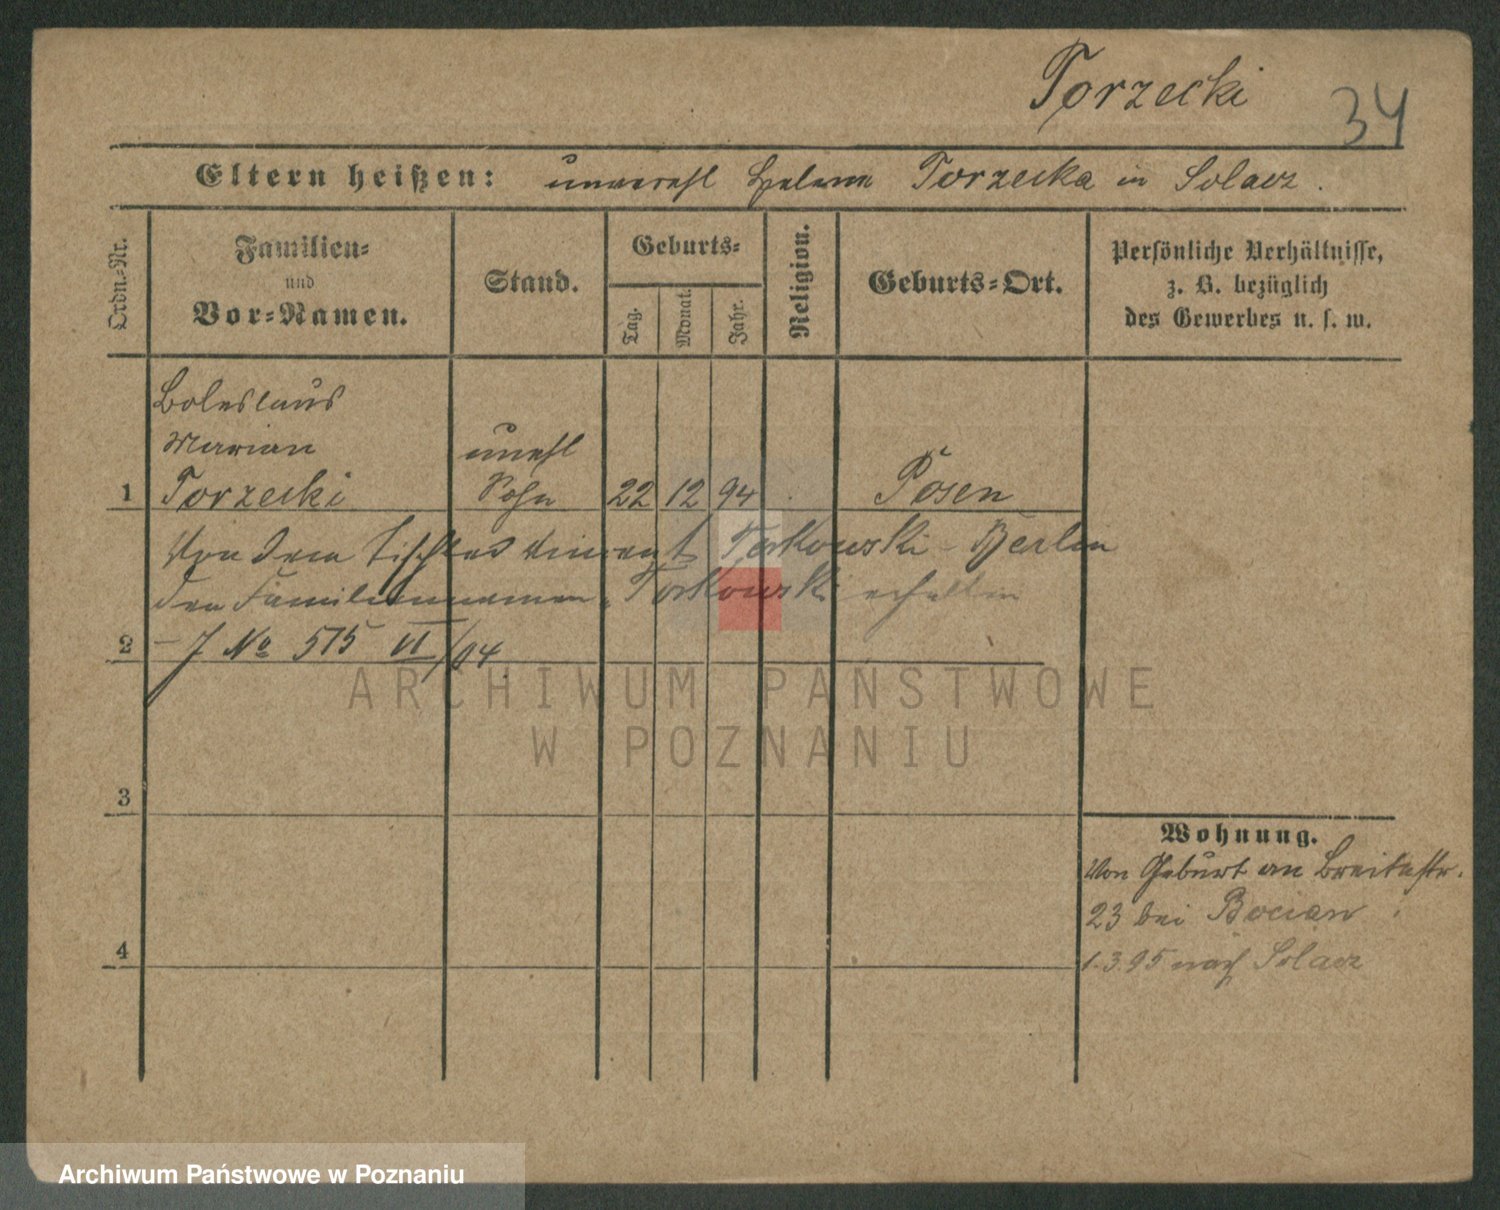 Torzecki
34
Eltern heißen: unverehl Helene Torzecka in Solacz.
Ordn.-Nr.
Familien-
und
Vor-Namen.
Stand.
Geburts-
Tag.
Monat.
Jahr.
Religion.
Geburts-Ort.
Persönliche Verhältnisse,
z. B. bezüglich
des Gewerbes u. s. w.
Boleslaus
Marian
Torzecki
unehl
Sohn
1 22 12 94 Posen
Von dem Tischler Vincent Torkowski - Berlin
den Familiennamen "Torkowski erhalten
2 - J No 575 VI/04
3
4
Wohnung.
Von Geburt an Breitestr.
23 bei Bocian
1.3.95 nach Solacz
ARCHIWUM PAŃSTWOWE
W POZNANIU
Archiwum Państwowe w Poznaniu